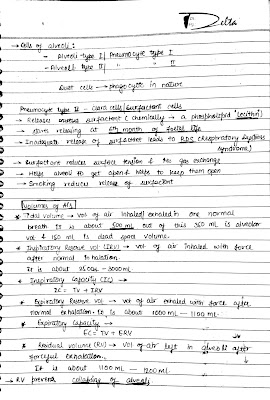 Delta
→ Cells of alveoli :
- Alveoli type I | Pneumocyte type I
- Alveoli type II | " " II
Dust cells → phagocytic in nature
Pneumocyte type II - Clara cells | Surfactant cells
→ Releases surfactant ( chemically → a phospholipid 'Lecithin')
→ starts releasing at 6th month of foetal life
→ Inadequate release of surfactant leads to RDS (Respiratory distress
syndrome)
→ Surfactant reduces surface tension & ↑es gas exchange
→ Helps alveoli to get open & helps to keep them open
→ Smoking reduces release of surfactant
Volumes of Air
* Tidal volume → vol of air inhaled/exhaled in one normal
breath It is about 500 ml out of this 350 ml is alveolar
vol & 150 ml is dead space volume.
* Inspiratory Reserve vol (IRV) → vol of air inhaled with force
after normal inhalation.
It is about 2500 - 3000 ml
* Inspiratory Capacity (IC) →
IC = TV + IRV
* Expiratory Reserve vol → vol of air exhaled with force after
normal exhalation. It is about 1000 ml - 1100 ml
* Expiratory Capacity →
EC = TV + ERV
* Residual volume (RV) → Vol of air left in alveoli after
forceful exhalation.
It is about 1100 ml - 1200 ml
→ RV prevents collapsing of alveoli